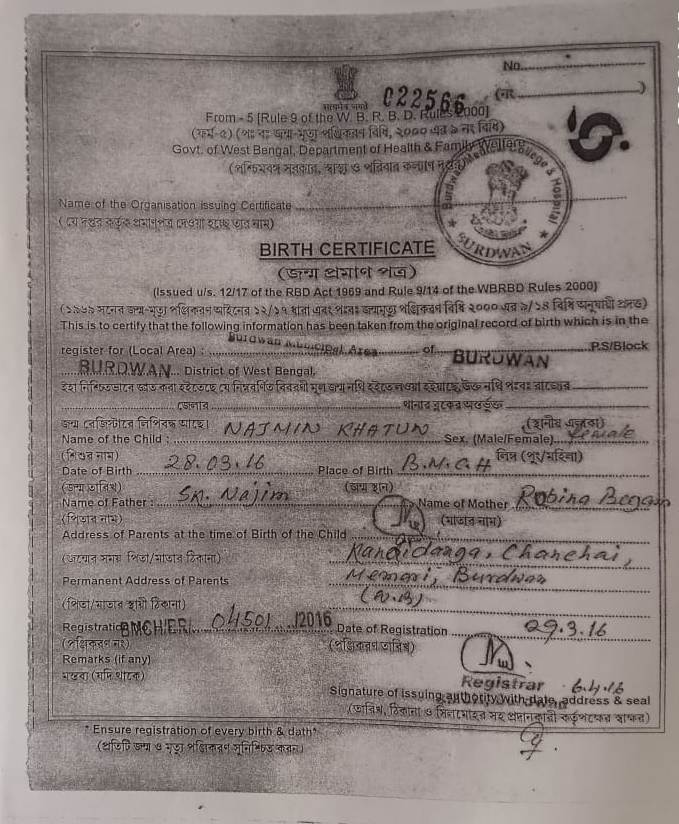 No.
022566 (নং )
सत्यमेव जयते
From - 5 [Rule 9 of the W. B. R. B. D. Rules 2000]
(ফর্ম-৫) (পঃ বঃ জন্ম-মৃত্যু পঞ্জিকরণ বিধি, ২০০০ এর ৯ নং বিধি)
Govt. of West Bengal, Department of Health & Family Welfare
(পশ্চিমবঙ্গ সরকার, স্বাস্থ্য ও পরিবার কল্যাণ দপ্তর)
Burdwan Medical College & Hospital
★ BURDWAN ★
Name of the Organisation issuing Certificate
( যে দপ্তর কর্তৃক প্রমাণপত্র দেওয়া হচ্ছে তার নাম)
BIRTH CERTIFICATE
(জন্ম প্রমাণ পত্র)
(Issued u/s. 12/17 of the RBD Act 1969 and Rule 9/14 of the WBRBD Rules 2000)
(১৯৬৯ সনের জন্ম-মৃত্যু পঞ্জিকরণ আইনের ১২/১৭ ধারা এবং পঃবঃ জন্মমৃত্যু পঞ্জিকরণ বিধি ২০০০ এর ৯/১৪ বিধি অনুযায়ী প্রদত্ত)
This is to certify that the following information has been taken from the original record of birth which is in the
register for (Local Area) : Burdwan Municipal Area of BURDWAN P.S/Block
BURDWAN District of West Bengal,
ইহা নিশ্চিতভাবে জ্ঞাত করা হইতেছে যে নিম্নবর্ণিত বিবরণী মূল জন্ম নথি হইতে লওয়া হইয়াছে, উক্ত নথি পঃবঃ রাজ্যের
জেলার থানার ব্লকের অন্তর্ভুক্ত
জন্ম রেজিস্টারে লিপিবদ্ধ আছে। (স্থানীয় এলাকা)
Name of the Child : NAJMIN KHATUN Sex. (Male/Female) female
(শিশুর নাম) লিঙ্গ (পুং/মহিলা)
Date of Birth 28.03.16 Place of Birth B.M.C.H
(জন্ম তারিখ) (জন্ম স্থান)
Name of Father : SK. Najim Name of Mother Robina Begam
(পিতার নাম) (মাতার নাম)
Address of Parents at the time of Birth of the Child
(জন্মের সময় পিতা/মাতার ঠিকানা) Kandidanga, Chanchai,
Permanent Address of Parents Memari, Burdwan
(পিতা/মাতার স্থায়ী ঠিকানা) (W.B)
Registration BMCH/ER/ 04501 /2016 Date of Registration 29.3.16
(পঞ্জিকরণ নং) (পঞ্জিকরণ তারিখ)
Remarks (if any)
মন্তব্য (যদি থাকে)
Registrar 6.4.16
Signature of issuing authority with date, address & seal
(তারিখ, ঠিকানা ও সিলমোহর সহ প্রদানকারী কর্তৃপক্ষের স্বাক্ষর)
* Ensure registration of every birth & dath*
(প্রতিটি জন্ম ও মৃত্যু পঞ্জিকরণ সুনিশ্চিত করুন)